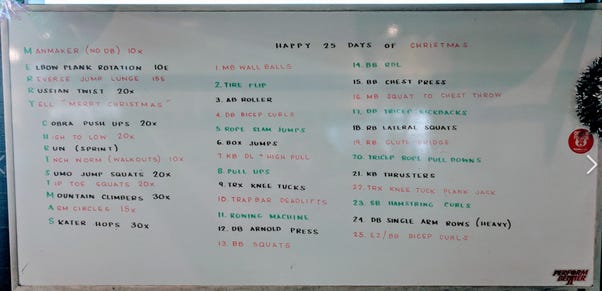 HAPPY 25 DAYS OF CHRISTMAS
MANMAKER (NO DB) 10x
ELBOW PLANK ROTATION 10E
REVERSE JUMP LUNGE 15E
RUSSIAN TWIST 20x
YELL "MERRY CHRISTMAS"
COBRA PUSH UPS 20x
HIGH TO LOW 20x
RUN (SPRINT)
INCH WORM (WALKOUTS) 10x
SUMO JUMP SQUATS 20x
TIP TOE SQUATS 20x
MOUNTAIN CLIMBERS 30x
ARM CIRCLES 15x
SKATER HOPS 30x
1. MB WALL BALLS
2. TIRE FLIP
3. AB ROLLER
4. DB BICEP CURLS
5 ROPE SLAM JUMPS
6. BOX JUMPS
7. KB DL + HIGH PULL
8. PULL UPS
9. TRX KNEE TUCKS
10. TRAP BAR DEADLIFTS
11. ROWING MACHINE
12. DB ARNOLD PRESS
13. BB SQUATS
14. BB RDL
15. BB CHEST PRESS
16. MB SQUAT TO CHEST THROW
17. DB TRICEP KICKBACKS
18. BB LATERAL SQUATS
19. BB GLUTE BRIDGE
20. TRICEP ROPE PULL DOWNS
21. KB THRUSTERS
22. TRX KNEE TUCK PLANK JACK
23. SB HAMSTRING CURLS
24. DB SINGLE ARM ROWS (HEAVY)
25. EZ/BB BICEP CURLS
PERFORM
BETTER